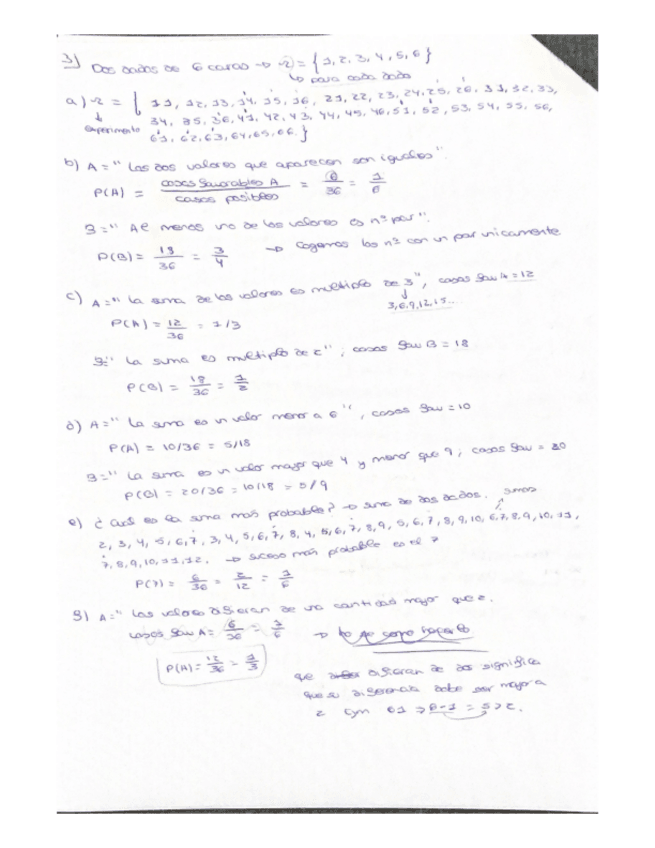 3) Dos dados de 6 caras → Ω = { 1, 2, 3, 4, 5, 6 }
↳ para cada dado
a) Ω = { 11, 12, 13, 14, 15, 16, 21, 22, 23, 24, 25, 26, 31, 32, 33,
↓ experimento
34, 35, 36, 41, 42, 43, 44, 45, 46, 51, 52, 53, 54, 55, 56,
61, 62, 63, 64, 65, 66. }
b) A = " Los dos valores que aparecen son iguales".
P(A) = casos favorables A / casos posibles = 6/36 = 1/6
B = " Al menos uno de los valores es nº par ".
P(B) = 18/36 = 3/4 → Cogemos los nº con un par unicamente
c) A = " La suma de los valores es multiplo de 3", casos fav A = 12
↓ 3, 6, 9, 12, 15...
P(A) = 12/36 = 1/3
B: " La suma es multiplo de 2" ; casos fav B = 18
P(B) = 18/36 = 1/2
d) A = " La suma es un valor menor a 6 ", casos fav = 10
P(A) = 10/36 = 5/18
B = " La suma es un valor mayor que 4 y menor que 9 ; casos fav = 20
P(B) = 20/36 = 10/18 = 5/9
e) ¿ Cual es la suma más probable? → suma de dos dados.
sumas
2, 3, 4, 5, 6, 7, 3, 4, 5, 6, 7, 8, 4, 5, 6, 7, 8, 9, 5, 6, 7, 8, 9, 10, 6, 7, 8, 9, 10, 11,
7, 8, 9, 10, 11, 12. → suceso más probable es el 7
P(7) = 6/36 = 2/12 = 1/6
g) A = " Los valores difieran de una cantidad mayor que 2.
casos fav A = 6/36 = 1/6 →
P(A) = 12/36 = 1/3
que difieran de dos significa
que su diferencia debe ser mayor a
2 61 → 6-1 = 5 > 2.